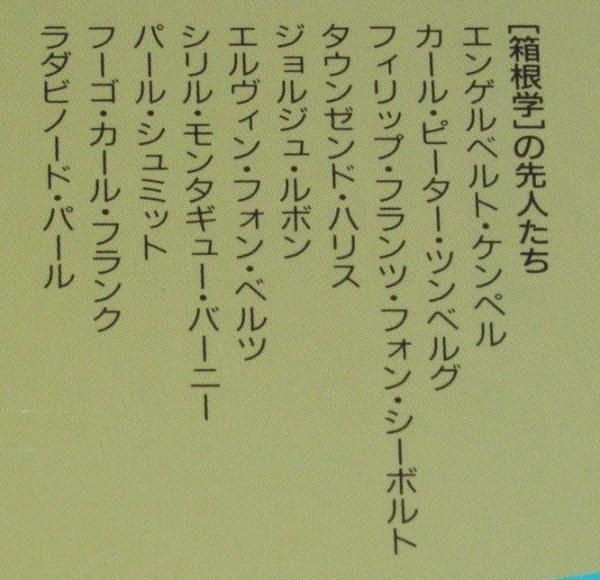 [箱根学]の先人たち
エンゲルベルト・ケンペル
カール・ピーター・ツンベルグ
フィリップ・フランツ・フォン・シーボルト
タウンゼンド・ハリス
ジョルジュ・ルボン
エルヴィン・フォン・ベルツ
シリル・モンタギュー・バーニー
パール・シュミット
フーゴ・カール・フランク
ラダビノード・パール